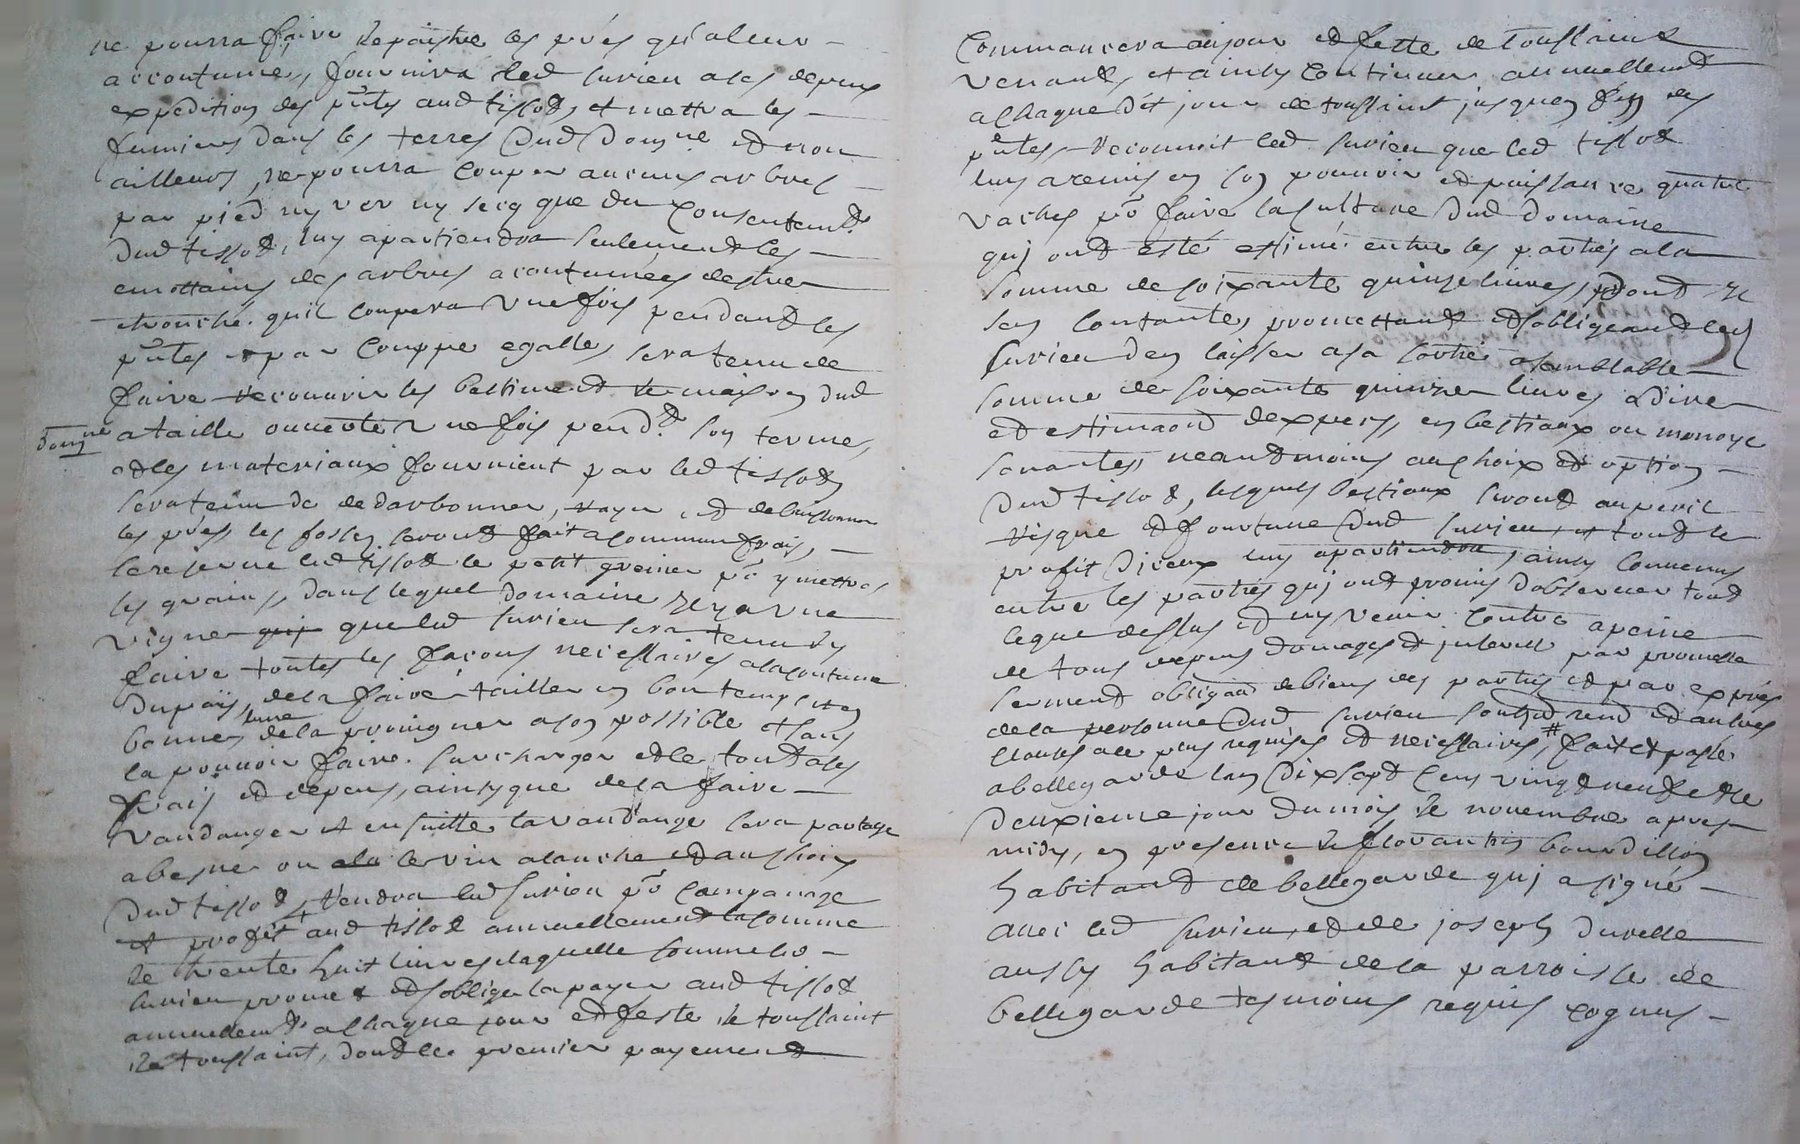 ne pourra faire repaistre les prés qu'aleur
accoutumé, fournira led surieu a ses depens
expedition des pntes aud tissot, et mettra les
fumiers dans les terres dud domne et non
ailleurs, ne pourra couper aucuns arbres
par pied ny ver ny secq que du consentemt
dud tissot, luy apartiendra seulement les
emottains des arbres acoutumées destre
tronché. quil coupera une fois pendant les
pntes et par couppe egalle, sera tenu de
faire recouvrir les bastiment et maison dud
domne a taille ouverte une fois pendt son terme,
et les materiaux fournient par led tissot,
sera tenu de dedarbonner, et debuissonner
les prés, les fossez seront fait a commun frais,
se reserve led tissot le petit grenier po y mettre
les grains, dans lequel domaine il y a une
vigne que led surieu sera tenu dy
faire toutes les façons necessaires a la coutume
du païs, de la faire tailler en bon temps et en
bonne lune de la provigner a son possible et sans
la pouvoir faire surcharger et le tout a ses
frais et depens, ainsy que de la faire
vandanger et ensuitte la vandange sera partagé
a besne ou le vin a lanche et au choix
dud tissot, rendra led surieu po companage
et profit aud tissot annuellement la somme
de trente huit livres laquelle somme led
surieu promet et soblige la payer aud tissot
annuellemt a chaque jour et feste de toussaint
de toussaint, dont le premier payement
commancera aujour et feste de toussaint
venant, et ainsy continuer annuellemt
a chaque dit jour de toussaint jusquen fin des
pntes, reconnoit led surieu que led tissot
luy a remis en son pouvoir et puissance quatre
vaches po faire la culture dud domaine
qui ont esté estimé entre les parties a la
somme de soixante quinze livres, dont il
sen contante, promettant et sobligeant led
surieu den laisser a sa sortie a semblable
somme de soixante quinze livres a dire
et estimaon dexpers, en bestiaux ou monoye
sonantes, neantmoins au choix et option
dud tissot, lesquels bestiaux seront au peril
risque et fourtune dud surieu, et tout le
profit diceux luy apartiendra, ainsy convenus
entre les parties qui ont promis dobserver tout
ce que dessus et ny venir contre a peine
de tous depens domages et interest par promesse
serment obligaon de biens des parties et par exprés
de la personne dud surieu et autres
clauses a ce plus requises et necessaires, # fait et passé
a bellegarde lan dix sept cens vingt neuf et le
deuxieme jour du mois de novembre apres
midy, en presence de florantin bourdillon
habitant de bellegarde qui a signé
avec led surieu, et de joseph durelle
aussy habitant de la parroisse de
bellegarde tesmoins requis cognus